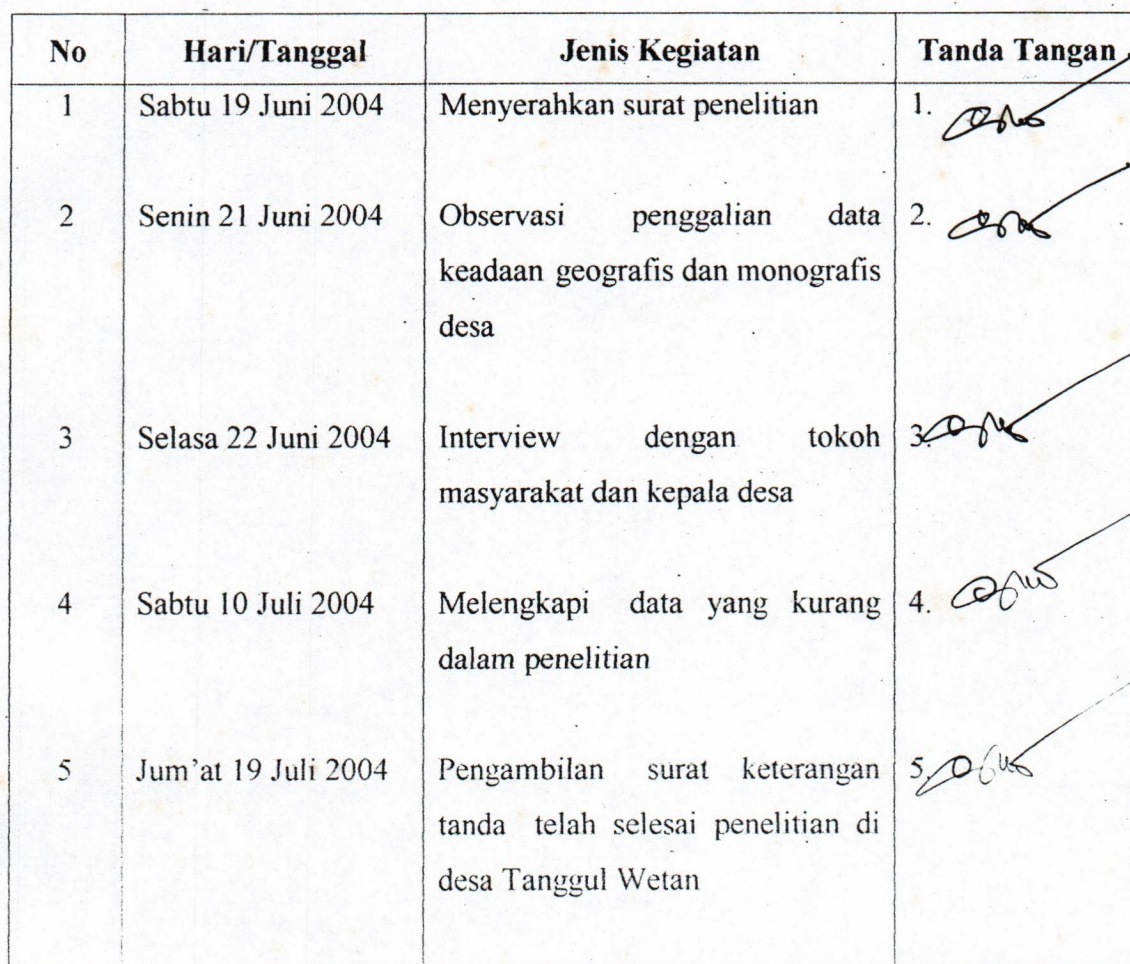 No Hari/Tanggal Jenis Kegiatan Tanda Tangan
1 Sabtu 19 Juni 2004 Menyerahkan surat penelitian 1.
2 Senin 21 Juni 2004 Observasi penggalian data 2.
keadaan geografis dan monografis
desa
3 Selasa 22 Juni 2004 Interview dengan tokoh 3.
masyarakat dan kepala desa
4 Sabtu 10 Juli 2004 Melengkapi data yang kurang 4.
dalam penelitian
5 Jum'at 19 Juli 2004 Pengambilan surat keterangan 5.
tanda telah selesai penelitian di
desa Tanggul Wetan